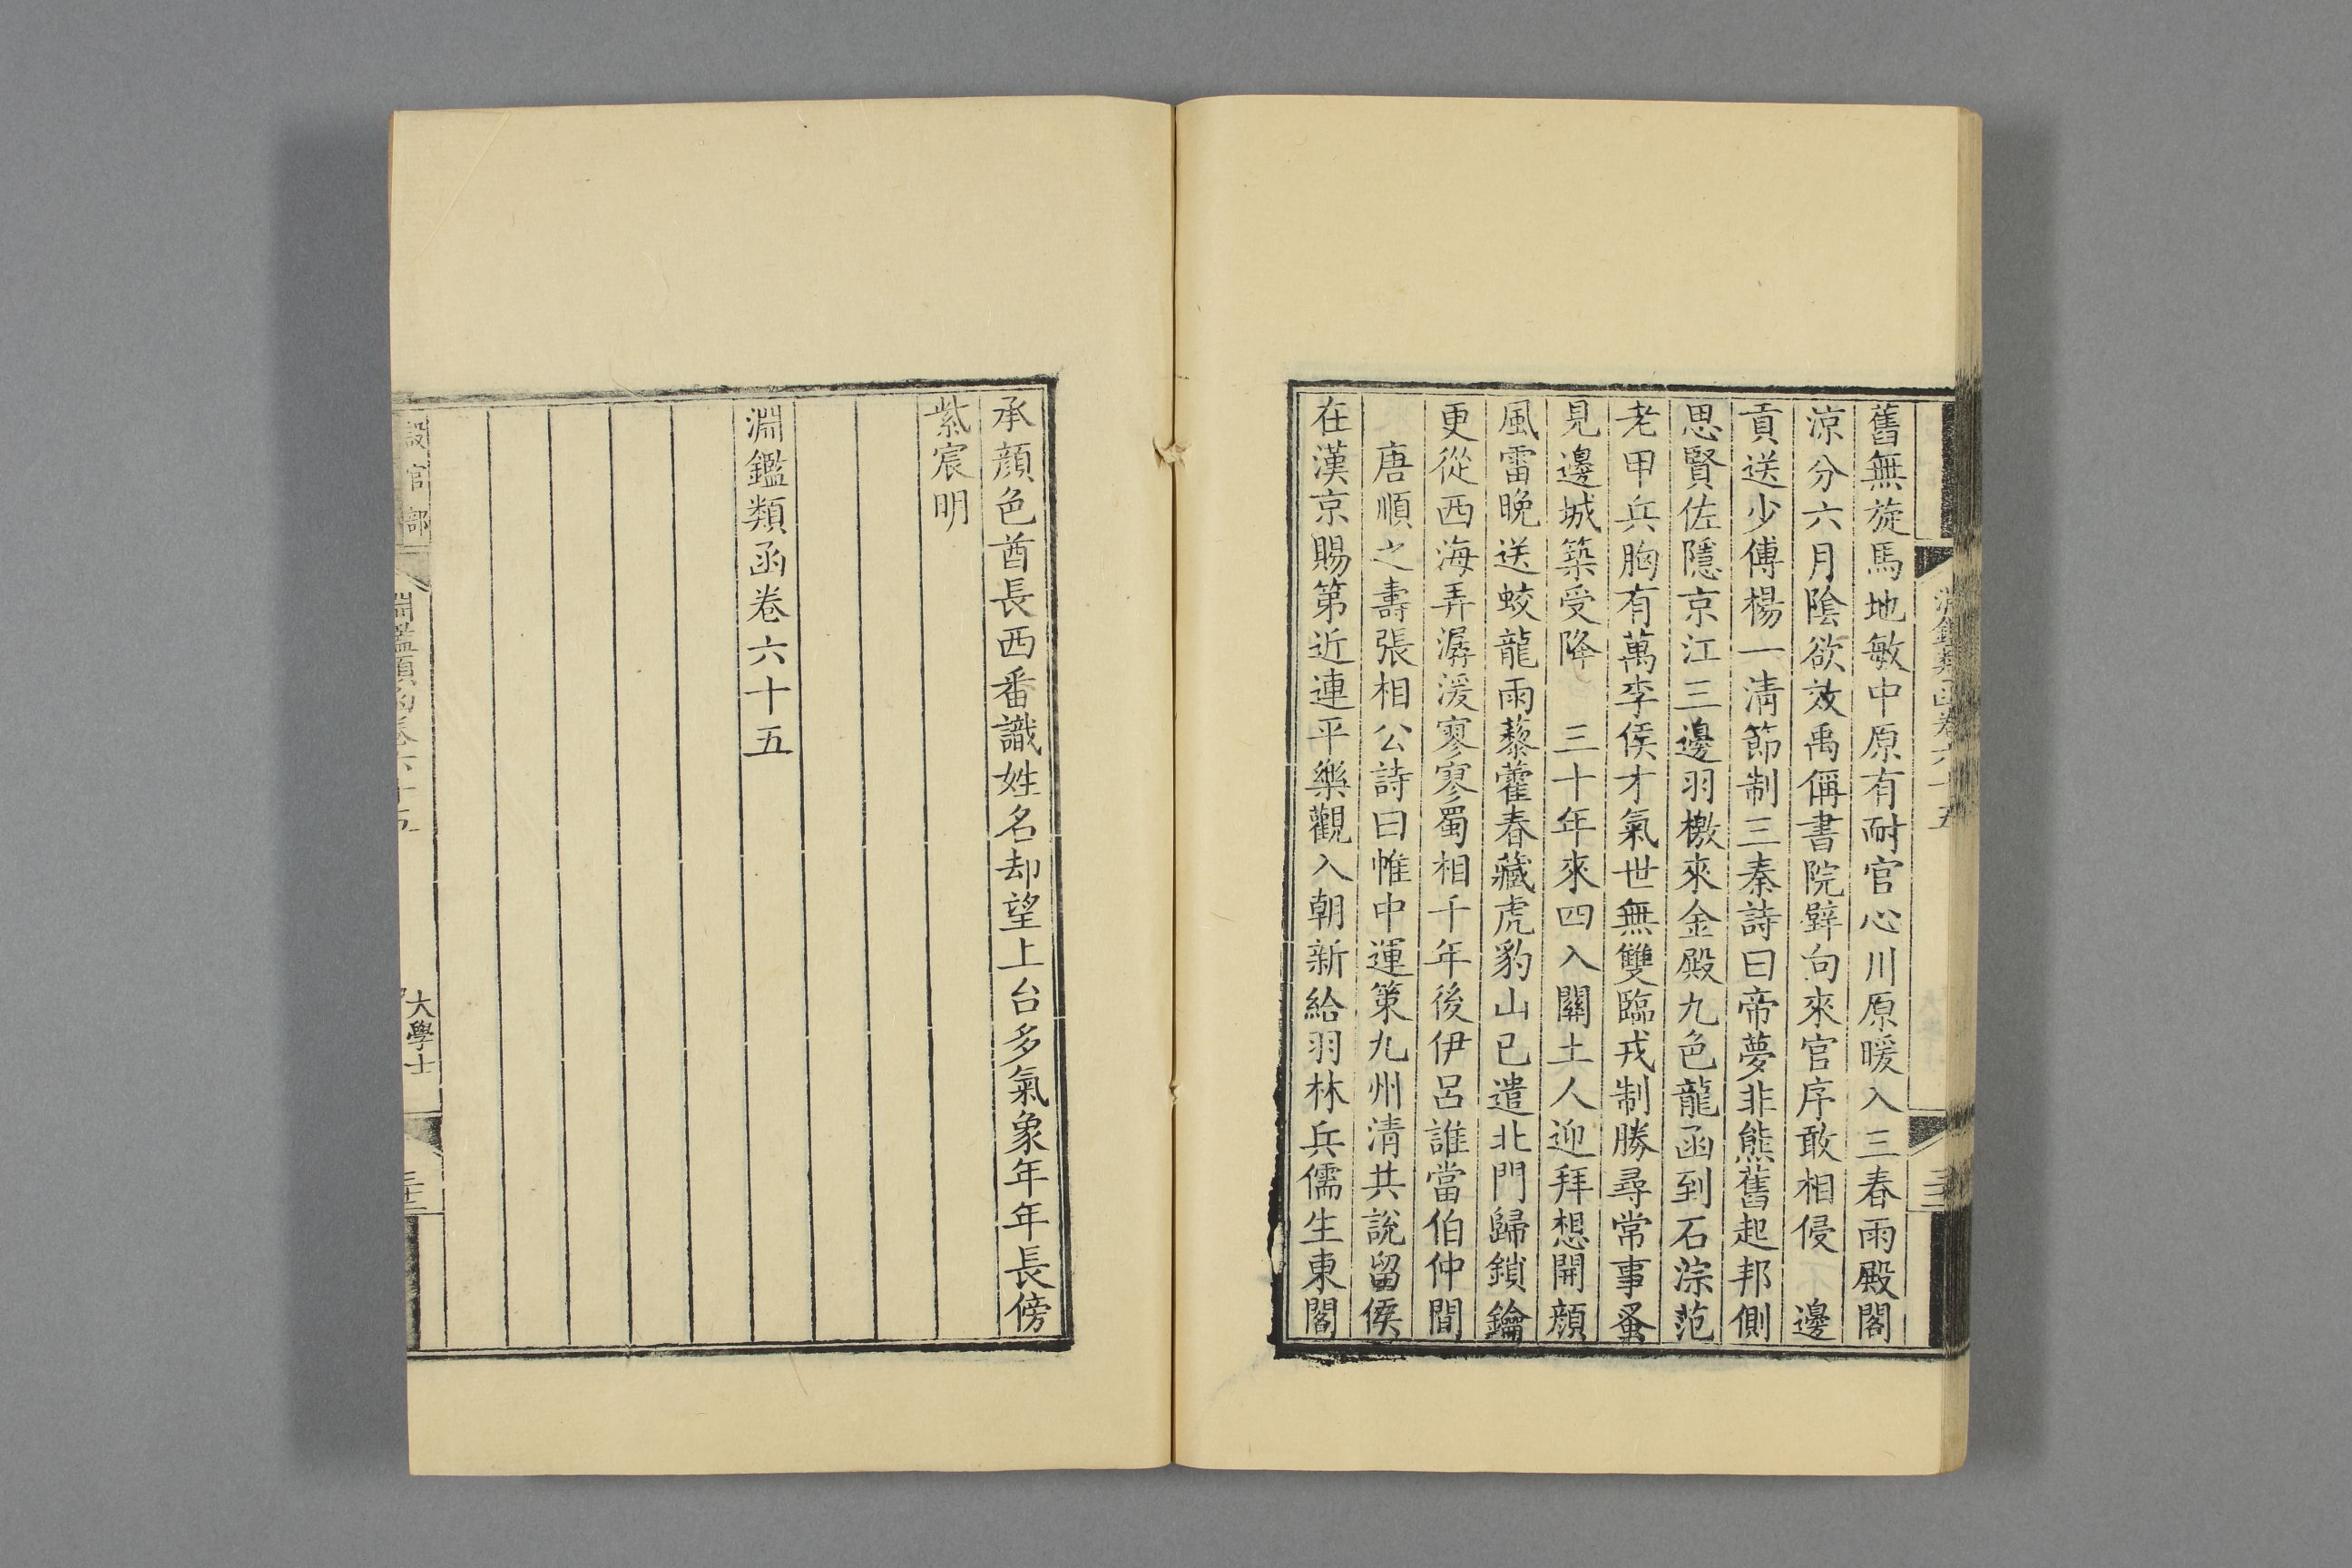 舊無旋馬地敏中原有耐官心川原暖入三春雨殿閣
涼分六月陰欲效禹偁書院壁向來官序敢相侵　邊
貢送少傅楊一清節制三秦詩曰帝夢非熊舊起邦側
思賢佐隱京江三邊羽檄來金殿九色龍函到石淙范
老甲兵胸有萬李侯才氣世無雙臨戎制勝尋常事蚤
見邊城築受降　三十年來四入關土人迎拜想開顏
風雷晚送蛟龍雨藜藿春藏虎豹山已遣北門歸鎖鑰
更從西海弄潺湲寥寥蜀相千年後伊呂誰當伯仲間
唐順之壽張相公詩曰帷中運策九州清共說留侯
在漢京賜第近連平樂觀入朝新給羽林兵儒生東閣
承顏色酋長西番識姓名却望上台多氣象年年長傍
紫宸明
淵鑑類函卷六十五
設官部
淵鑑類函卷六十五
大學士